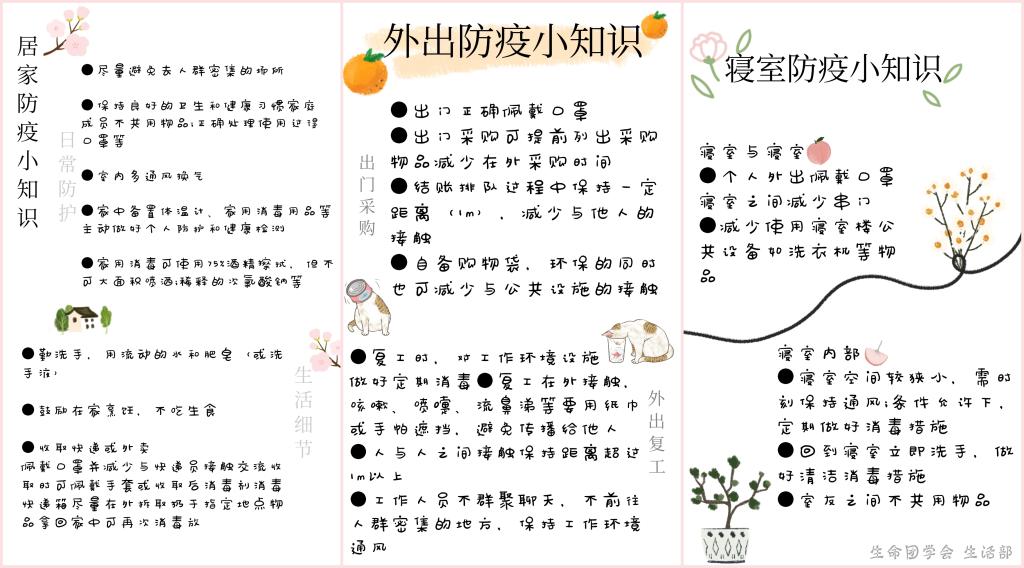 居家防疫小知识
日常防护
●尽量避免去人群密集的场所
●保持良好的卫生和健康习惯家庭
成员不共用物品;正确处理使用过得
口罩等
●室内多通风换气
●家中备置体温计、家用消毒用品等
主动做好个人防护和健康检测
●家用消毒可使用75%酒精擦拭，但不
可大面积喷洒;稀释的次氯酸钠等
●勤洗手，用流动的水和肥皂（或洗
手液）
●鼓励在家烹饪，不吃生食
●收取快递或外卖
佩戴口罩并减少与快递员接触交流收
取时可佩戴手套或收取后消毒剂消毒
快递箱尽量在外拆取扔于指定地点物
品拿回家中可再次消毒放
生活细节
外出防疫小知识
出门采购
●出门正确佩戴口罩
●出门采购可提前列出采购
物品减少在外采购时间
●结账排队过程中保持一定
距离（1m），减少与他人的
接触
●自备购物袋，环保的同时
也可减少与公共设施的接触
●复工时，对工作环境设施
做好定期消毒●复工在外接触，
咳嗽、喷嚏、流鼻涕等要用纸巾
或手帕遮挡，避免传播给他人
●人与人之间接触保持距离超过
1m以上
●工作人员不群聚聊天，不前往
人群密集的地方，保持工作环境
通风
外出复工
寝室防疫小知识
寝室与寝室
●个人外出佩戴口罩
寝室之间减少串门
●减少使用寝室楼公
共设备如洗衣机等物
品
寝室内部
●寝室空间较狭小，需时
刻保持通风;条件允许下，
定期做好消毒措施
●回到寝室立即洗手，做
好清洁消毒措施
●室友之间不共用物品
生命团学会 生活部